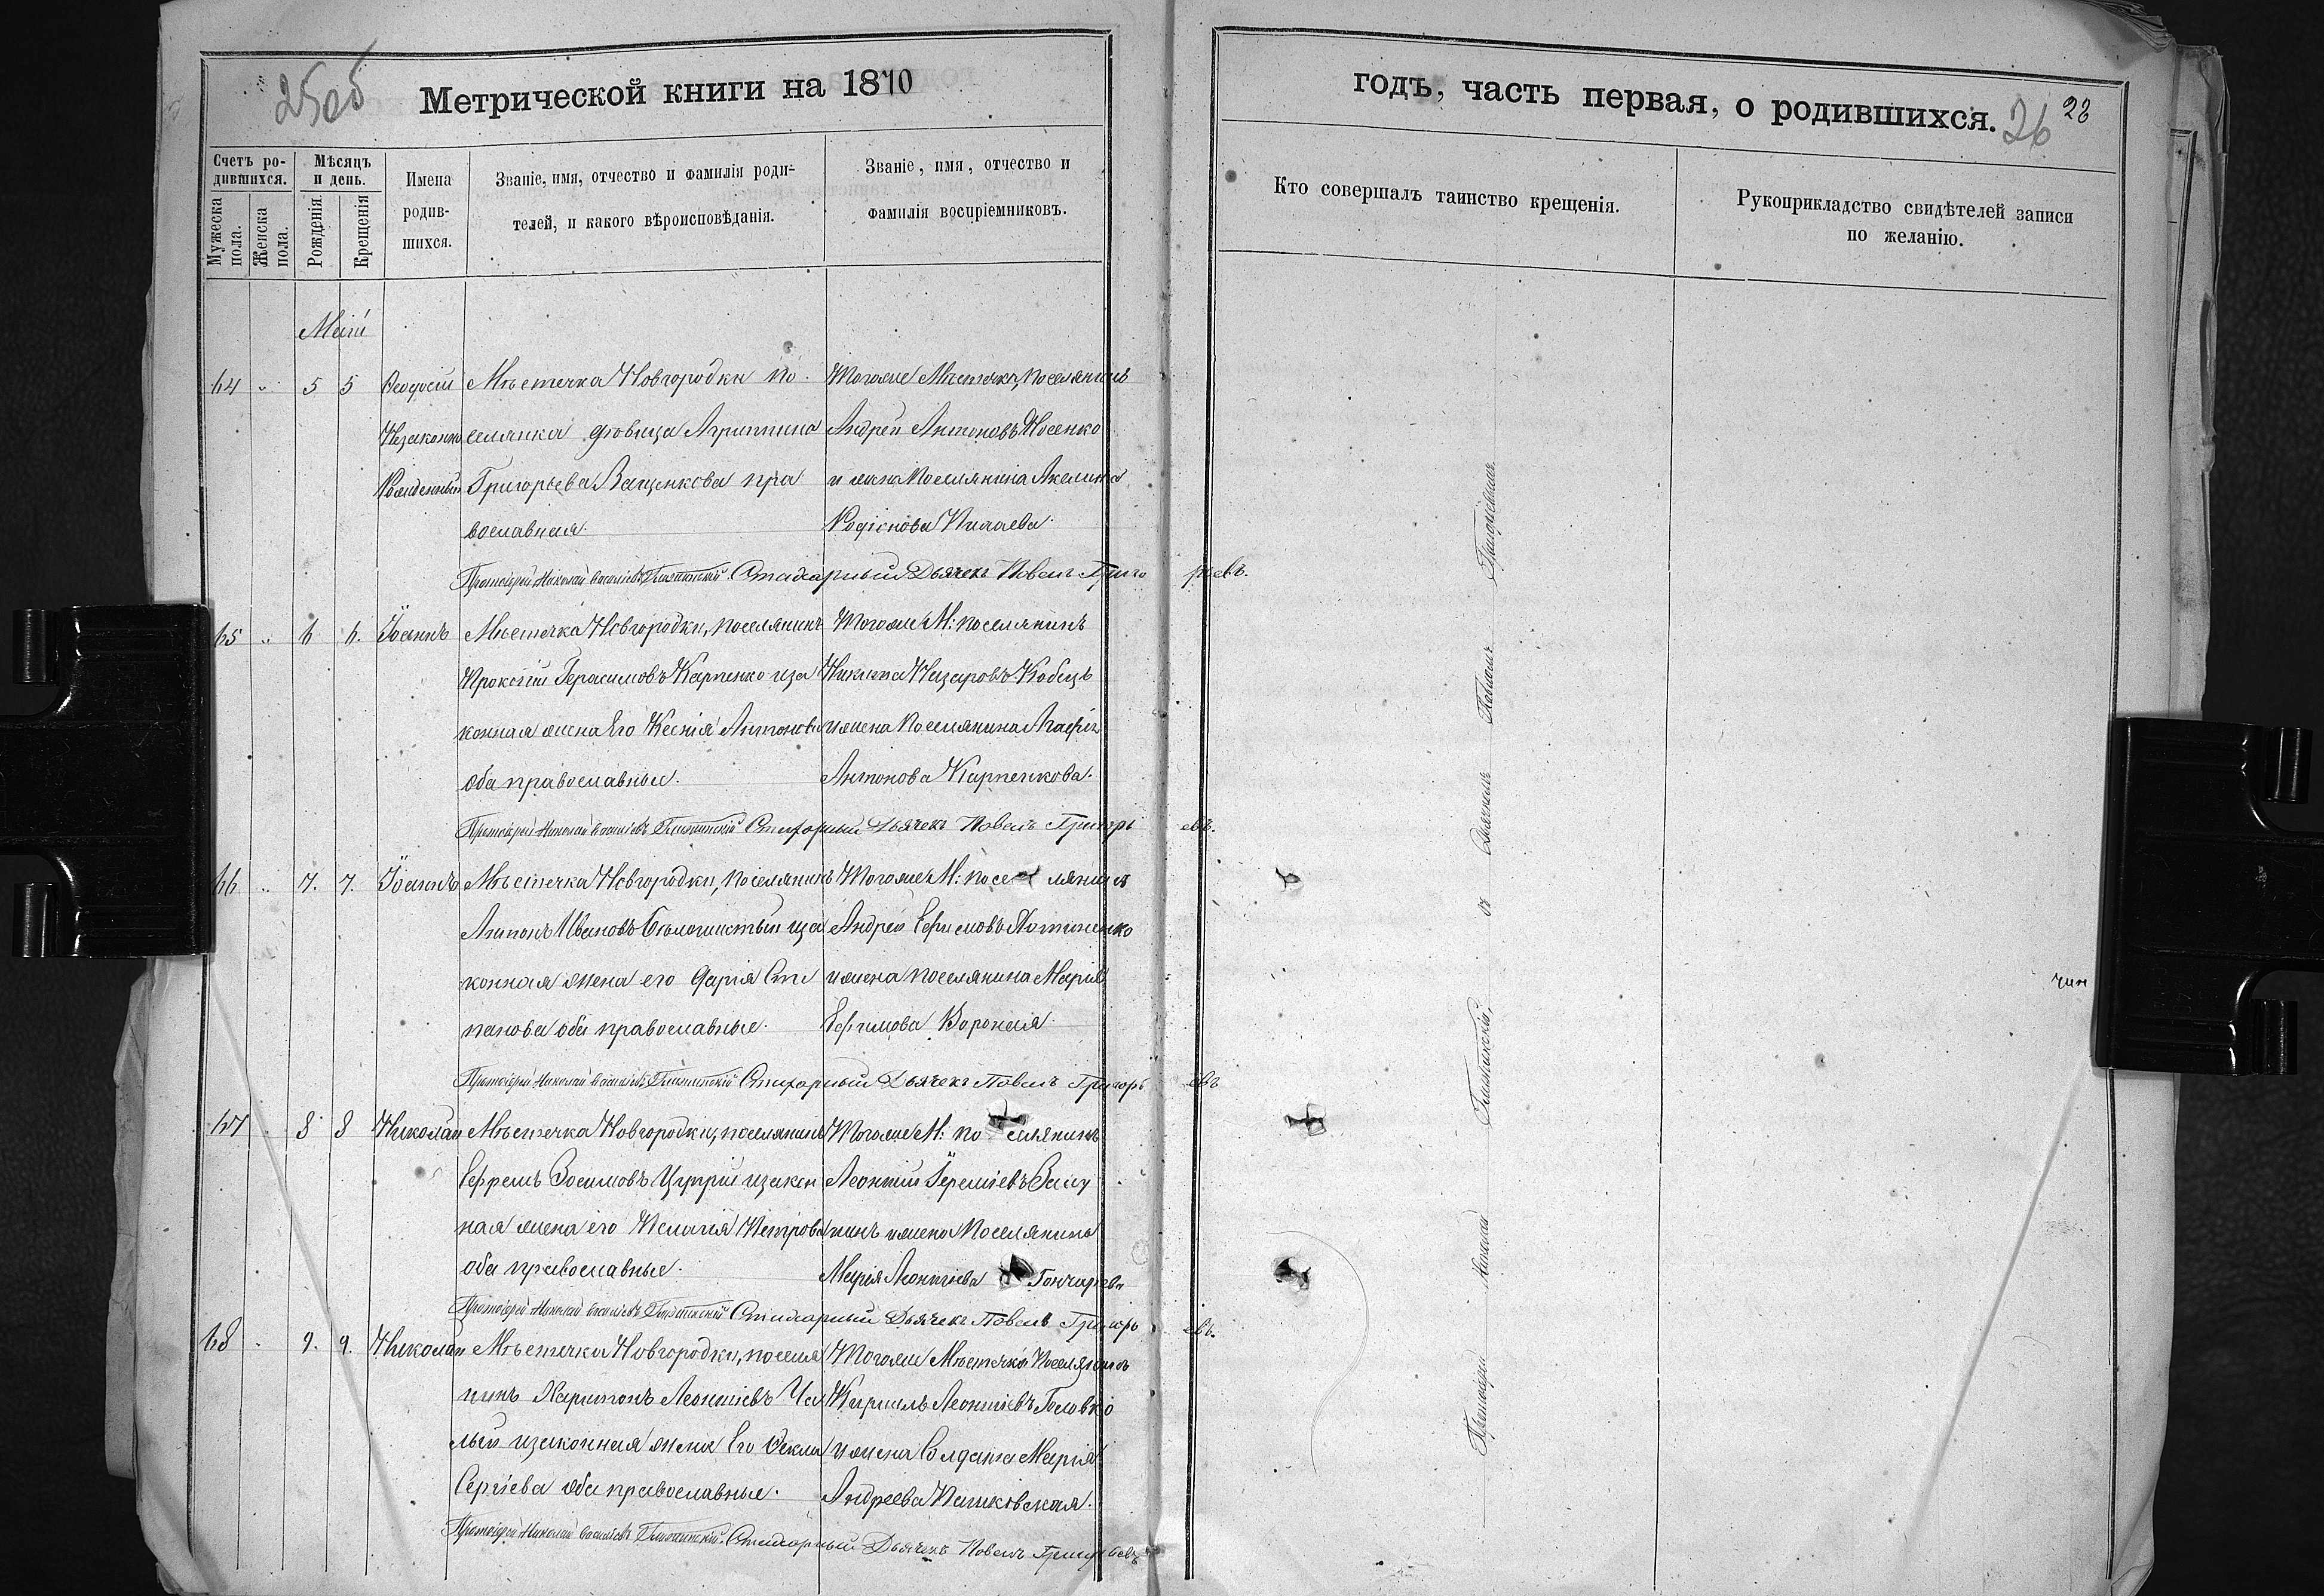 25 об
Метрической книги на 1870
годъ, часть первая, о родившихся.
26
Счетъ родившихся.
Мужеска пола.
Женска пола.
Мѣсяцъ и день.
Рожденія.
Крещенія
Имена родившихся.
Званіе, имя, отчество и фамилія родителей, и какого вѣроисповѣданія.
Званіе, имя, отчество и фамилія воспріемниковъ.
Кто совершалъ таинство крещенія.
Рукоприкладство свидѣтелей записи по желанію.
Маій
64 " 5 5 Ѳеодосій Незаконно Рожденный
Мѣстечка Новгородки по
селянка дѣвица Агриппина
Григорьева Ващенкова пра
вославная.
Тогоже Мѣстечка, Поселянинъ
Андрей Антоновъ Носенко
и жена Поселянина Акелина
Родіонова
Протоіерей Николай Васильевъ Стихарный Дьячекъ Павелъ Григорьевъ.
65 " 6 6. Іоаннъ
Мѣстечка Новгородки, поселянинъ
Прокопій Герасимовъ Карпенко и за
конная жена Его Ксенія Антонова
оба православные.
Тогоже М: поселянинъ
Никита Назаровъ Кобецъ
и жена Поселянина Агафія
Антонова Карпенкова.
Протоіерей Николай Васильевъ Стихарный Дьячекъ Павелъ Григорьевъ.
66 " 7. 7. Іоаннъ
Мѣстечка Новгородки, поселянинъ
Антонъ Ивановъ и за
конная жена его Дарія Сте
панова оба православные.
Тогоже М: поселянинъ
Андрей Ефимовъ
и жена поселянина Марія
Ефимова Вороная
Протоіерей Николай Васильевъ Стихарный Дьячекъ Павелъ Григорьевъ
67 " 8 8 Николай
Мѣстечка Новгородки, поселянинъ
Ефремъ Зосимовъ и закон
ная жена его Пелагія Петрова
оба православные.
Тогоже М: поселянинъ
Леонтій Іереміевъ
и жена Поселянина
Марія Леонтіева Гончарова
Протоіерей Николай Васильевъ Стихарный Дьячекъ Павелъ Григорьевъ.
68 " 9. 9. Николай
Мѣстечка Новгородки, поселя
нинъ Харитонъ Леонтіевъ Ча
лый и законная жена Его Ѳекла
Сергіева оба православные.
Тогоже Мѣстечка Поселянинъ
Кирилъ Леонтіевъ Головко
и жена Солдата Марія
Андреева Пашковская.
Протоіерей Николай Васильевъ Стихарный Дьячекъ Павелъ Григорьевъ
Протоіерей Николай съ Дьячкомъ Павломъ Григорьевымъ